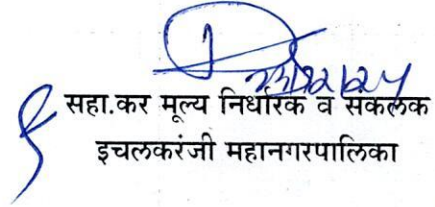 23/12/24
सहा.कर मूल्य निर्धारक व संकलक
इचलकरंजी महानगरपालिका